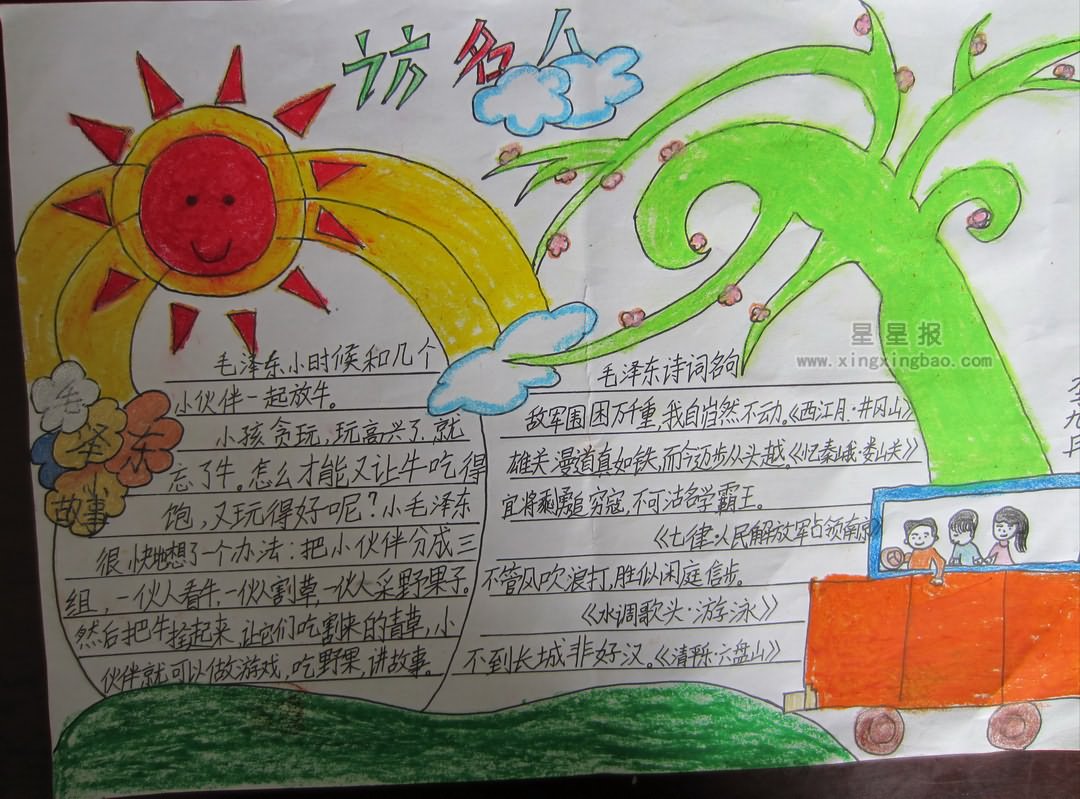 访名人
毛泽东
故事
毛泽东小时候和几个
小伙伴一起放牛。
小孩贪玩,玩高兴了,就
忘了牛。怎么才能又让牛吃得
饱,又玩得好呢?小毛泽东
很快地想了一个办法:把小伙伴分成三
组,一伙人看牛,一伙割草,一伙人采野果子。
然后把牛拴起来,让它们吃割来的青草,小
伙伴就可以做游戏,吃野果,讲故事。
毛泽东诗词名句
敌军围困万千重,我自岿然不动。《西江月·井冈山》
雄关漫道真如铁,而今迈步从头越。《忆秦娥·娄山关》
宜将剩勇追穷寇,不可沽名学霸王。
《七律·人民解放军占领南京
不管风吹浪打,胜似闲庭信步。
《水调歌头·游泳》
不到长城非好汉。《清平乐·六盘山》
星星报
www.xingxingbao.com
九